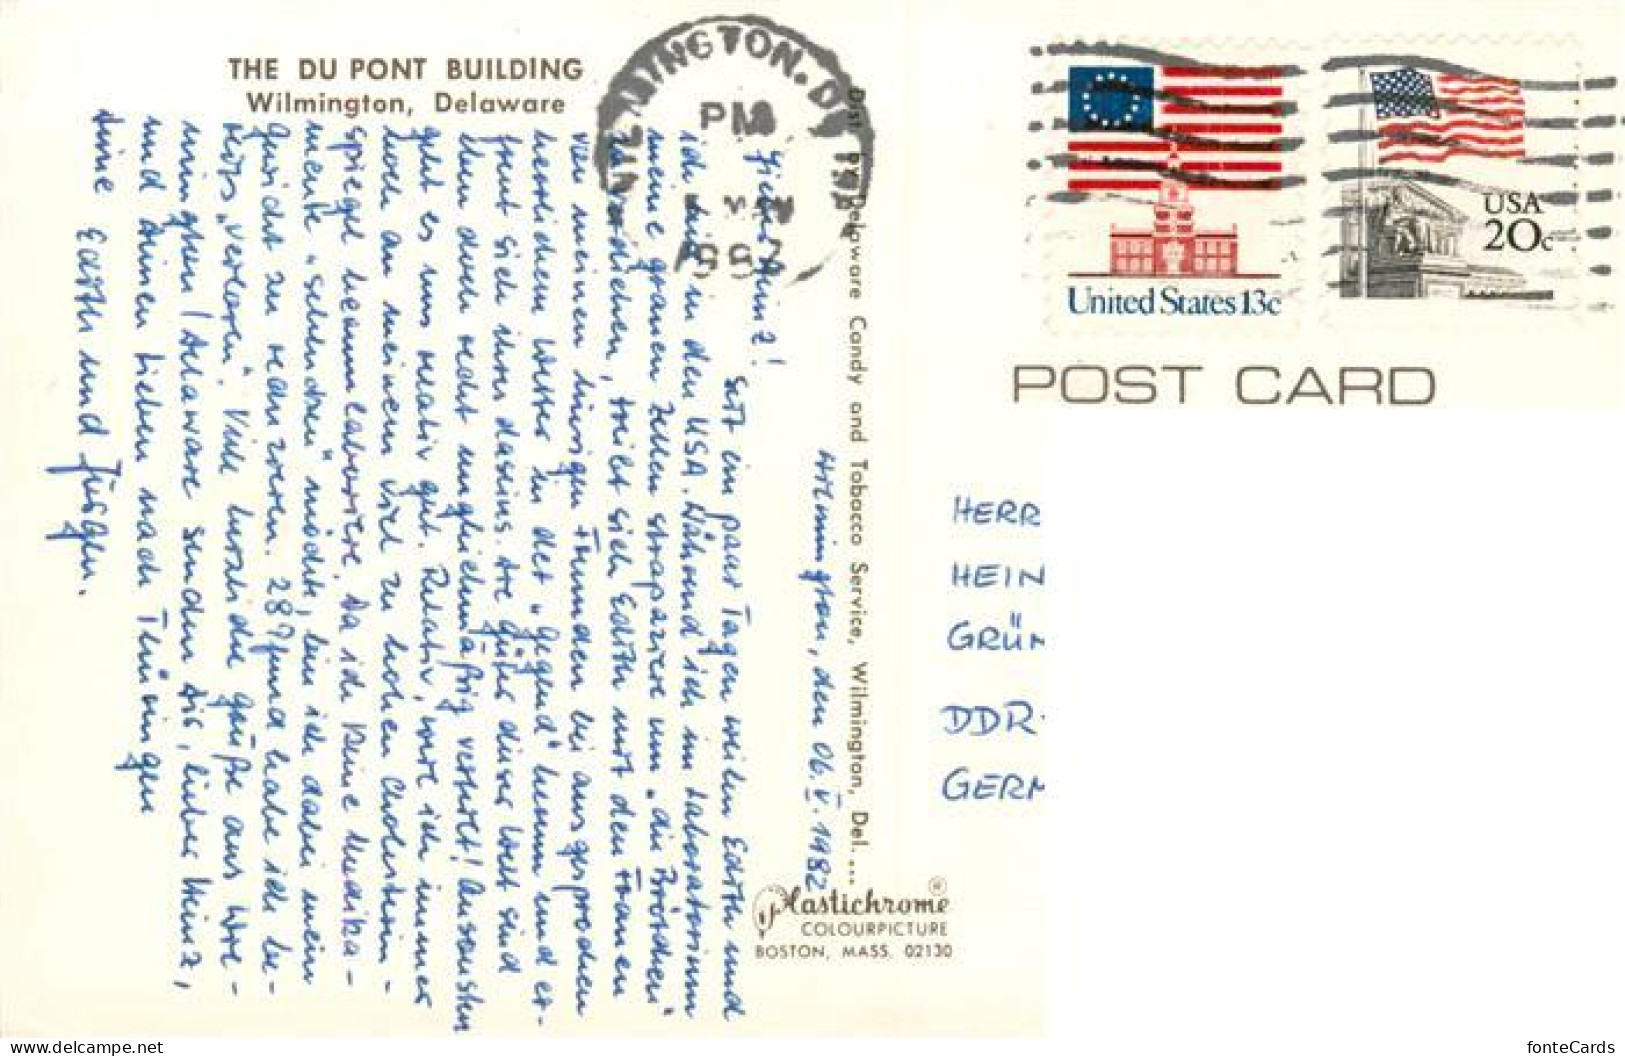 THE DU PONT BUILDING
Wilmington, Delaware
WILMINGTON, DE
PM
MAY
1982
Dist. by Delaware Candy and Tobacco Service, Wilmington, Del....
Wilmington, den 06.V.1982
Lieber Heinz!
Seit ein paar Tagen weilen Edith und
ich hier in den USA. Während ich im Laboratorium
meine grauen Zellen strapaziere um „die Brötchen"
zu verdienen, treibt sich Edith mit den Frauen
von meinen hiesigen Freunden bei ausgesprochen
herrlichem Wetter in der „Gegend" herum und er-
freut sich ihres Daseins. Die Güter dieser Welt sind
eben doch recht ungleichmäßig verteilt! Ansonsten
geht es uns relativ gut. Relativ, weil ich immer
noch an meinem viel zu hohen Cholesterin-
spiegel herumlaboriere. Da ich keine Medika-
mente „schlucken" möchte, bin ich dabei mein
Gewicht zu reduzieren. 28 Pfund habe ich be-
reits „verloren". Viele herzliche Grüße aus Wil-
mington / Delaware senden Dir, lieber Heinz,
und Deinen Lieben nach Thüringen
Deine Edith und Jürgen.
Plastichrome ®
COLOURPICTURE
BOSTON, MASS. 02130
United States 13c
USA
20c
POST CARD
HERR
HEIN
GRÜN
DDR-
GERM
delcampe.net
fonteCards